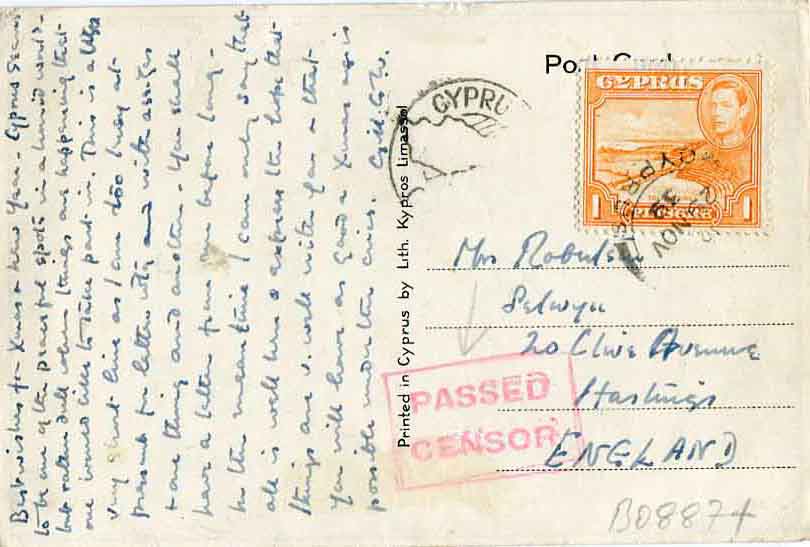 Best wishes for Xmas & New Year - Cyprus seems
to be one of the peaceful spots in a lurid world -
but rather dull when things are happening that
one would like to take part in. This is a
very short line as I am too busy at
present for letter writing and with
& one thing and another - You shall
have a letter from me before long -
In the meantime I can only say that
all is well here & express the hope that
things are v. well with you & that
you will have as good a Xmas as is
possible under the circs.
Post Card
CYPRUS
CYPRUS
1 PIASTRE 1
NOV
39
CYPRUS
Printed in Cyprus by Lith. Kypros Limassol
Mrs Robertson
Selwyn
20 Clive Avenue
Hastings
ENGLAND
PASSED
CENSOR
B08874